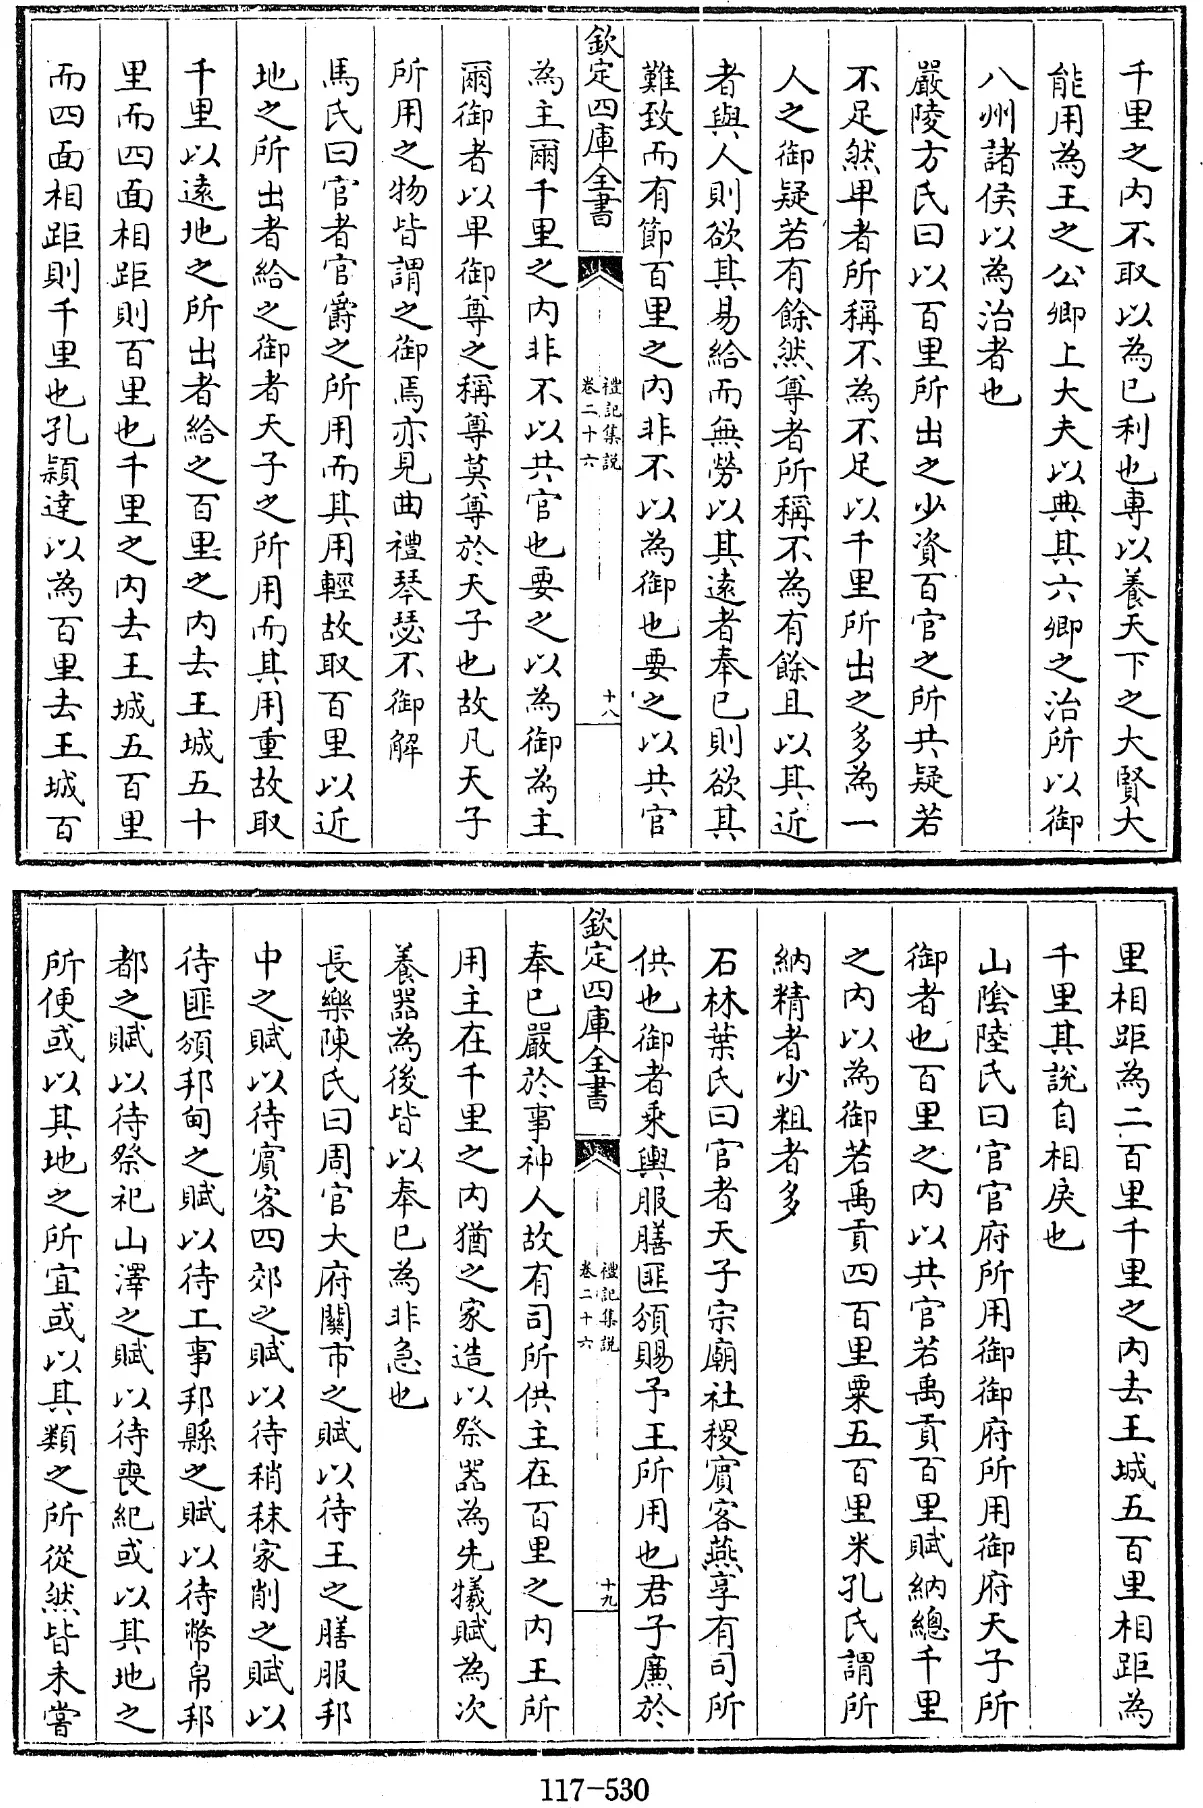 千里之内不取以為已利也專以養天下之大賢大
能用為王之公卿上大夫以典其六卿之治所以御
八州諸侯以為治者也
嚴陵方氏曰以百里所出之少資百官之所共疑若
不足然卑者所稱不為不足以千里所出之多為一
人之御疑若有餘然尊者所稱不為有餘且以其近
者與人則欲其易給而無勞以其遠者奉已則欲其
難致而有節百里之内非不以為御也要之以共官
欽定四庫全書
禮記集說
卷二十六
十八
為主爾千里之内非不以共官也要之以為御為主
爾御者以卑御尊之稱尊莫尊於天子也故凡天子
所用之物皆謂之御焉亦見曲禮琴瑟不御解
馬氏曰官者官爵之所用而其用輕故取百里以近
地之所出者給之御者天子之所用而其用重故取
千里以遠地之所出者給之百里之内去王城五十
里而四面相距則百里也千里之内去王城五百里
而四面相距則千里也孔頴達以為百里去王城百
里相距為二百里千里之内去王城五百里相距為
千里其說自相戾也
山陰陸氏曰官官府所用御御府所用御府天子所
御者也百里之内以共官若禹貢百里賦納總千里
之内以為御若禹貢四百里粟五百里米孔氏謂所
納精者少粗者多
石林葉氏曰官者天子宗廟社稷賔客燕享有司所
供也御者乘輿服膳匪頒賜予王所用也君子廉於
欽定四庫全書
禮記集說
卷二十六
十九
奉已嚴於事神人故有司所供主在百里之内王所
用主在千里之内猶之家造以祭器為先犧賦為次
養器為後皆以奉已為非急也
長樂陳氏曰周官大府關市之賦以待王之膳服邦
中之賦以待賔客四郊之賦以待稍秣家削之賦以
待匪頒邦甸之賦以待工事邦縣之賦以待幣帛邦
都之賦以待祭祀山澤之賦以待喪紀或以其地之
所便或以其地之所宜或以其類之所從然皆未嘗
117-530